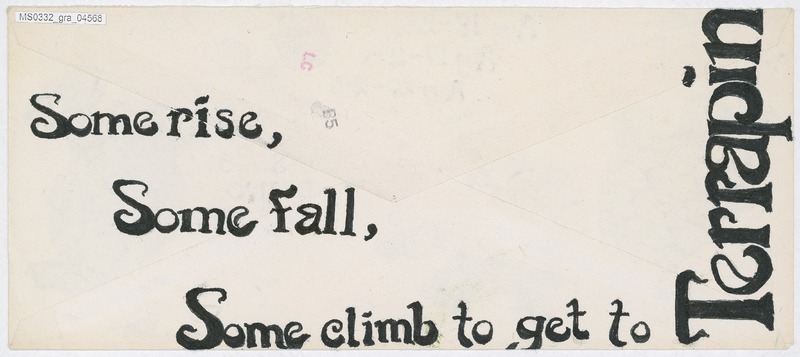 MS0332_gra_04568
LC
B5
Some rise,
Some fall,
Some climb to get to
Terrapin